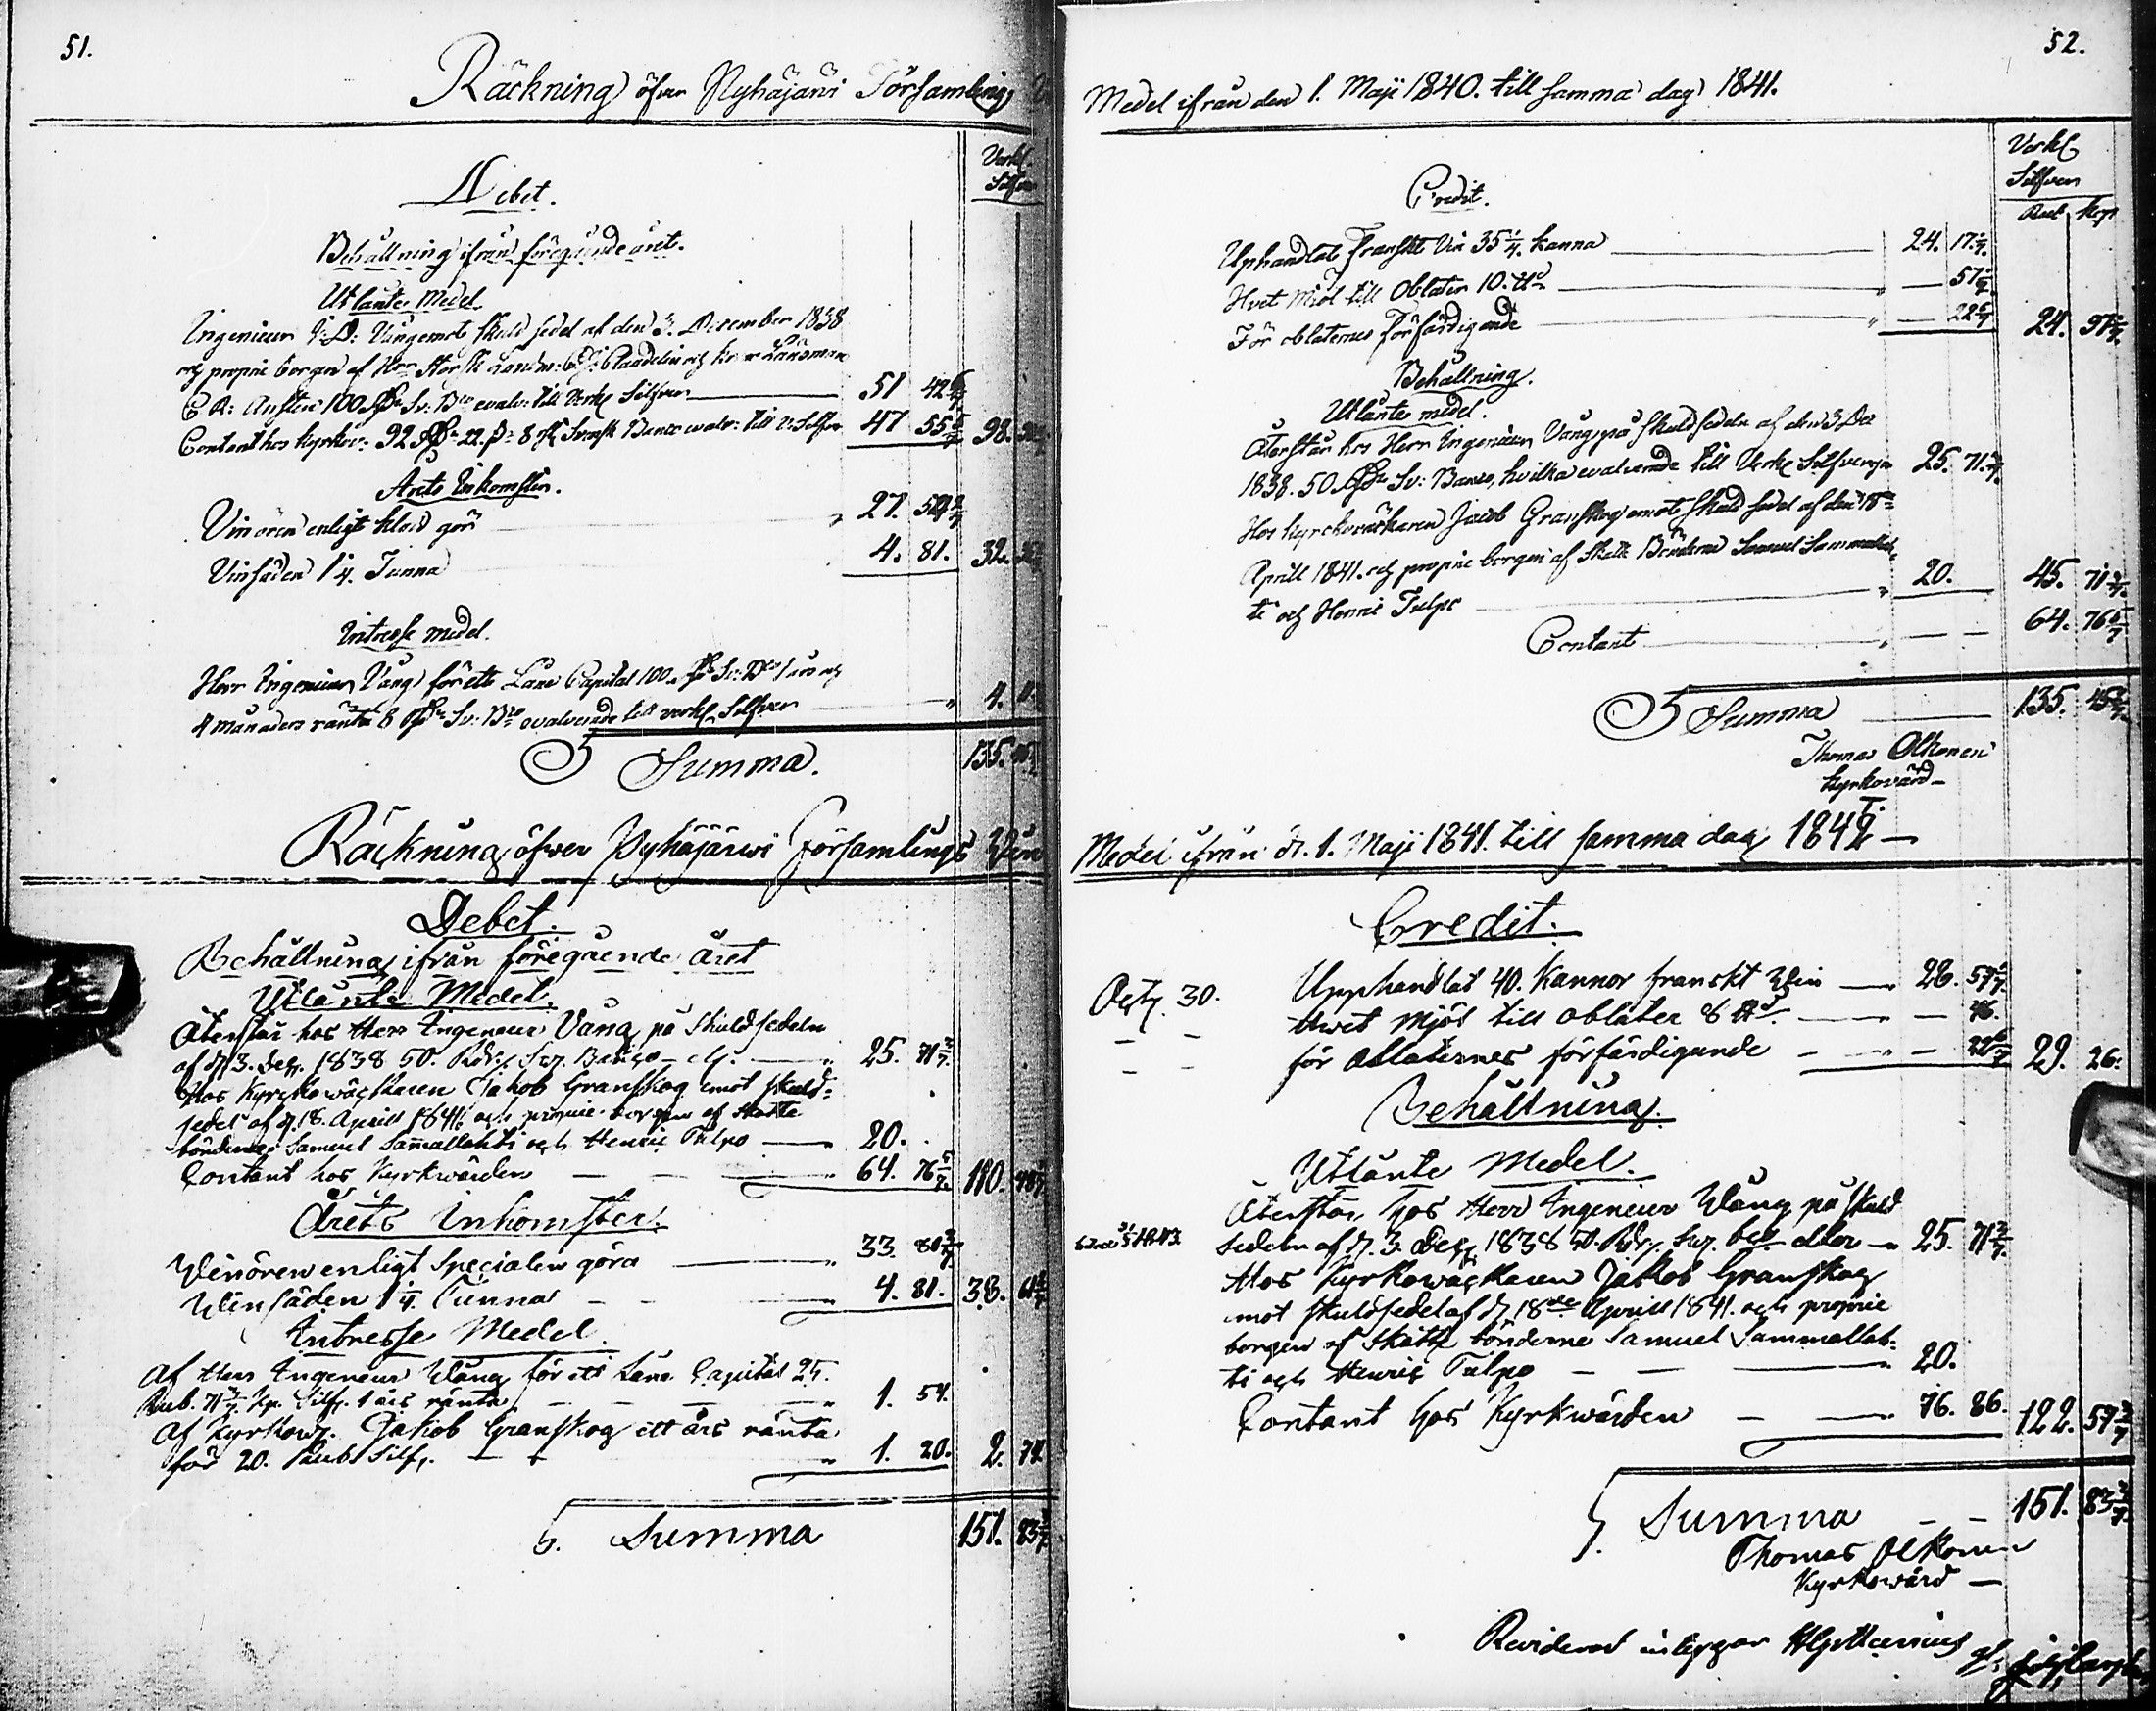 51.
Räckning öfver Pyhäjärvi Församlings
Verkl.
Silfver
Debet.
Behållning ifrån föregående året.
Utlånte Medel.
Ingenieur Vång emot skuld sedel af den 3. December 1838
och proprie borgen af Claudelin och Länsman
100 Sv: B:co evalv: till Verkl Silfver 51 42 6/7
Contant hos kyrkov: 92 22. 8 Svensk Banco evalv: till V: Silfver 47 55 98.
Årets Inkomster.
Vinören enligt gör 27. 5
Vinsäden 1 1/4. Tunna 4. 81. 32.
Intresse medel.
Herr Ingenieur Vång för ett Låne Capital 100 Sv: B:co 1 års och
4 månaders ränta 8 Sv: B:co evalverade till verkl. Silfver 4.
S Summa. 135.
Räckning öfver Pyhäjärwi Församlings Win
Debet.
Behållning ifrån föregående året
Utlånte Medel.
Återstår hos Herr Ingeneur Vång på skuldsedeln
af d. 3. Dec. 1838 50. Rdr. Banco 25. 71 3/7
Hos Kyrkowäcktaren Jakob Granskog emot skuld-
sedel af d. 18. Aprill 1841 och proprie borgen af skatte
bönderne Samuel Sammallahti och Henric Tulpo 20.
Contant hos Kyrkwärden 64. 76 5/7. 110.
Årets inkomster.
Winören enligt Specialen göra 33 80
Winsäden 1 1/4. Tunna 4. 81. 38. 61
Intresse Medel
Af Herr Ingeneur Wång för ett Låne Capital 25.
Rub. 71 3/7 Kp. Silf. 1 års ränta 1. 54.
Af Kyrkow. Jakob Granskog ett års ränta
för 20. Rub. Silf. 1. 20. 2. 74
S. Summa 151. 83
52.
Medel ifrån den 1. Maji 1840. till samma dag 1841.
Verkl
Silfver
Rub kop
Credit.
Uphandlat Franskt Vin 35 1/4. kanna 24. 17
Hvet Miöl till Oblater 10. 57
För oblaternes förfärdigande 22 6/7 24. 97
Behållning.
Utlånte medel.
Återstår hos Herr Ingenieur Vång på skuldsedeln af den 3 De
1838. 50 Sv: Banco, hvilka evalverade till Verkl Silfver gör 25. 71 3/7.
Hos kyrckoväcktaren Jacob Granskog emot skuld sedel af den 18de
Aprill 1841. och proprie borgen af Skatte Bönderne Samuel Sammallah-
ti och Henric Tulpo 20. 45. 71 3/7.
Contant 64. 76 5/7
S Summa 135. 45
Thomas Olkonen
kyrkovärd
Medel ifrån d. 1. Maji 1841. till samma dag 1842
Credit.
30. Upphandlat 40. Kannor franskt Win 28. 57 1/7
Hwet Mjöl till oblater 8 46.
för Oblaternes förfärdigande 22 6/7 29. 26.
Behållning.
Utlånte Medel.
Återstår hos Herr Ingenieur Wång på skuld
sedeln af d. 3. Dec. 1838 50. Rdr. bco eller 25. 71 3/7.
Hos Kyrkowäcktaren Jakob Granskog
emot skuldsedel af d. 18de Aprill 1841. och proprie
borgen af skatte bönderne Samuel Sammallah-
ti och Henric Tulpo 20.
Contant hos Kyrkwärden 76. 86. 122. 57 3/7
S. Summa 151. 83 3/7
Thomas Olkonen
Kyrkowärd
Reviderad intygar